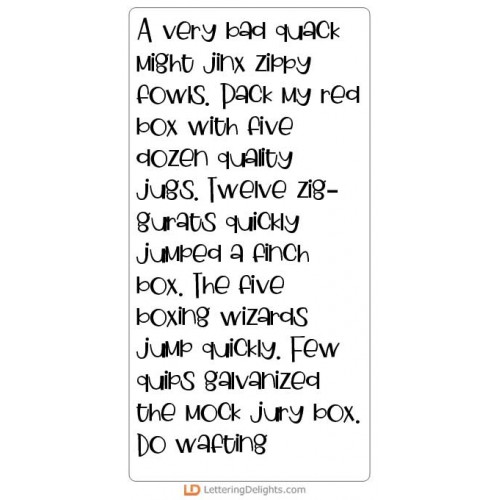 A very bad quack
might jinx zippy
fowls. Pack my red
box with five
dozen quality
jugs. Twelve zig-
gurats quickly
jumped a finch
box. The five
boxing wizards
jump quickly. Few
quips galvanized
the mock jury box.
Do wafting
LD LetteringDelights.com